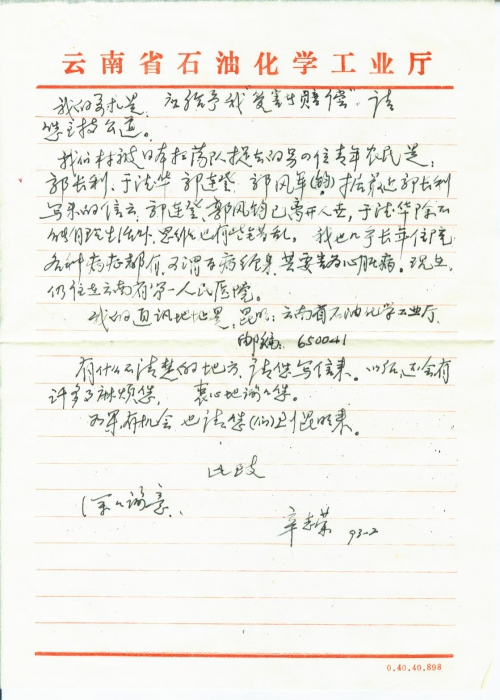 云南省石油化学工业厅
我的要求是：应给予我“受害者赔偿”。请
您主持公道。
我们村被日本扫荡队捉去的另4位青年农民是：
郭长利、于法华、郭连登、郭风军(钧) 据最近郭长利
写来的信云，郭连登、郭风钧已离开人世，于法华除不
能自理生活外，思维也有些错乱。我也几乎长年住院
各种病症都有，可谓百病缠身，其要害为心脏病。现在，
仍住在云南省第一人民医院。
我的通讯地址是：昆明：云南省石油化学工业厅
邮编：650041
有什么不清楚的地方，请您写信来。以后，还会有
许多了麻烦您，衷心地谢谢您。
如果有机会也请您(们)到昆明来。
此致
深深谢意。
辛志荣 93-2
0.40.40.898